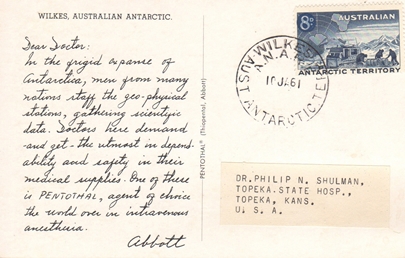 WILKES, AUSTRALIAN ANTARCTIC.
Dear Doctor:
In the frigid expanse of
Antarctica, men from many
nations staff the geo-physical
stations, gathering scientific
data. Doctors here demand
-and get- the utmost in depend-
ability and safety in their
medical supplies. One of these
is PENTOTHAL, agent of choice
the world over in intravenous
anesthesia.
Abbott
PENTOTHAL® (Thiopental, Abbott)
8D
AUSTRALIAN
ANTARCTIC TERRITORY
WILKES
A.N.A.R.E.
10 JA61
AUST ANTARCTIC TER
DR. PHILIP N. SHULMAN,
TOPEKA.STATE HOSP.,
TOPEKA, KANS.
U. S. A.